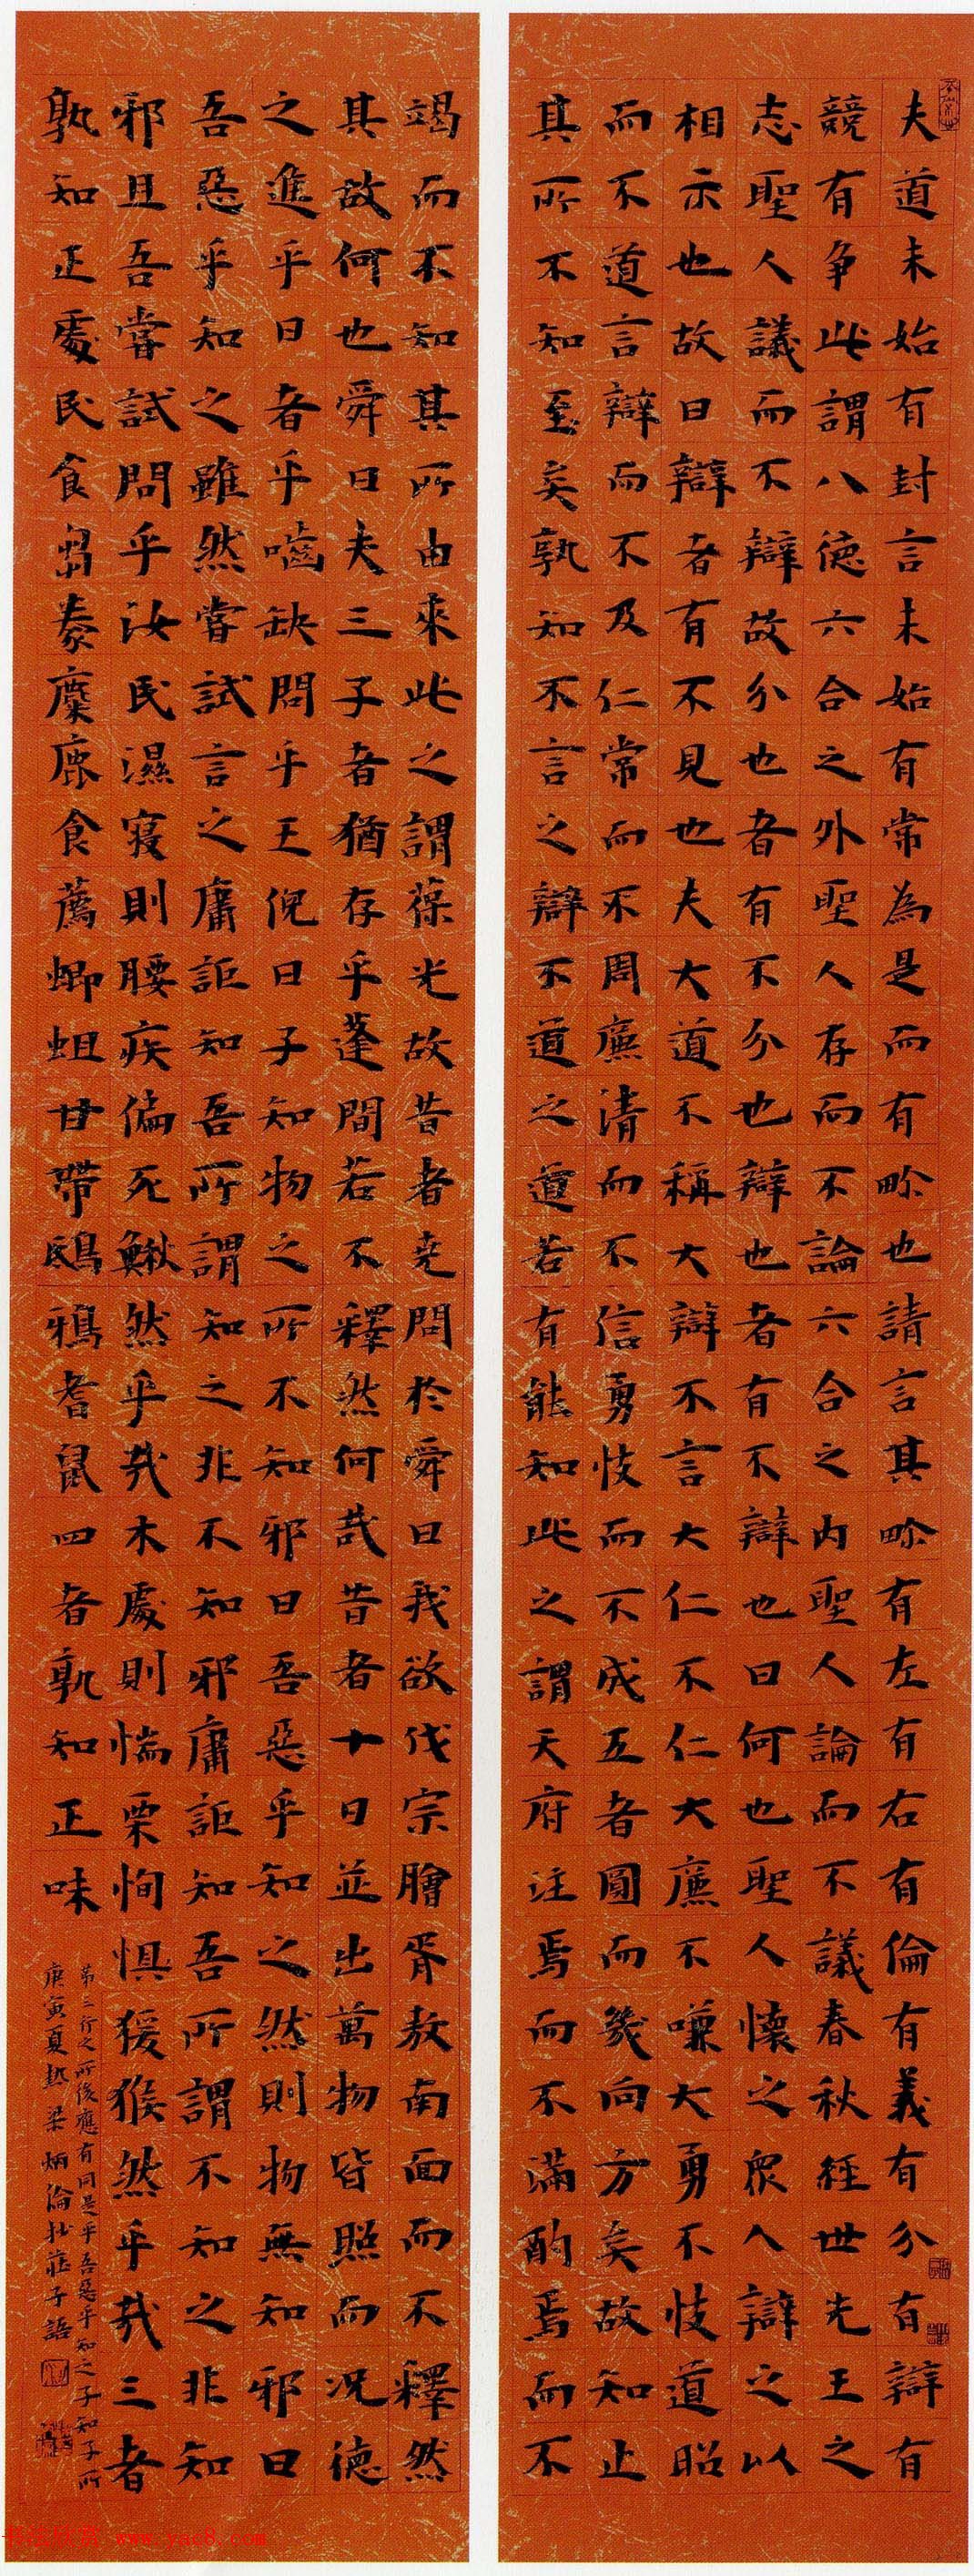 夫道未始有封言未始有常為是而有畛也請言其畛有左有右有倫有義有分有辯有
競有争此謂八德六合之外聖人存而不論六合之内聖人論而不議春秋經世先王之
志聖人議而不辯故分也者有不分也辯也者有不辯也曰何也聖人懷之眾人辯之以
相示也故曰辯者有不見也夫大道不稱大辯不言大仁不仁大廉不嗛大勇不忮道昭
而不道言辯而不及仁常而不周廉清而不信勇忮而不成五者圓而幾向方矣故知止
其所不知至矣孰知不言之辯不道之道若有能知此之謂天府注焉而不滿酌焉而不
竭而不知其所由來此之謂葆光故昔者堯問於舜曰我欲伐宗膾胥敖南面而不釋然
其故何也舜曰夫三子者猶存乎蓬間若不釋然何哉昔者十日並出萬物皆照而況德
之進乎日者乎嚙缺問乎王倪曰子知物之所不知邪曰吾惡乎知之然則物無知邪曰
吾惡乎知之雖然嘗試言之庸詎知吾所謂知之非不知邪庸詎知吾所謂不知之非知
邪且吾嘗試問乎汝民濕寢則腰疾偏死鰍然乎哉木處則惴栗恂懼猨猴然乎哉三者
孰知正處民食芻豢麋鹿食薦蝍蛆甘帶鴟鴉耆鼠四者孰知正味
第三行之所後應有同是乎吾惡乎知之子知子所
庚寅夏熱梁炳倫抄莊子語
书法欣赏 www.yac8.com